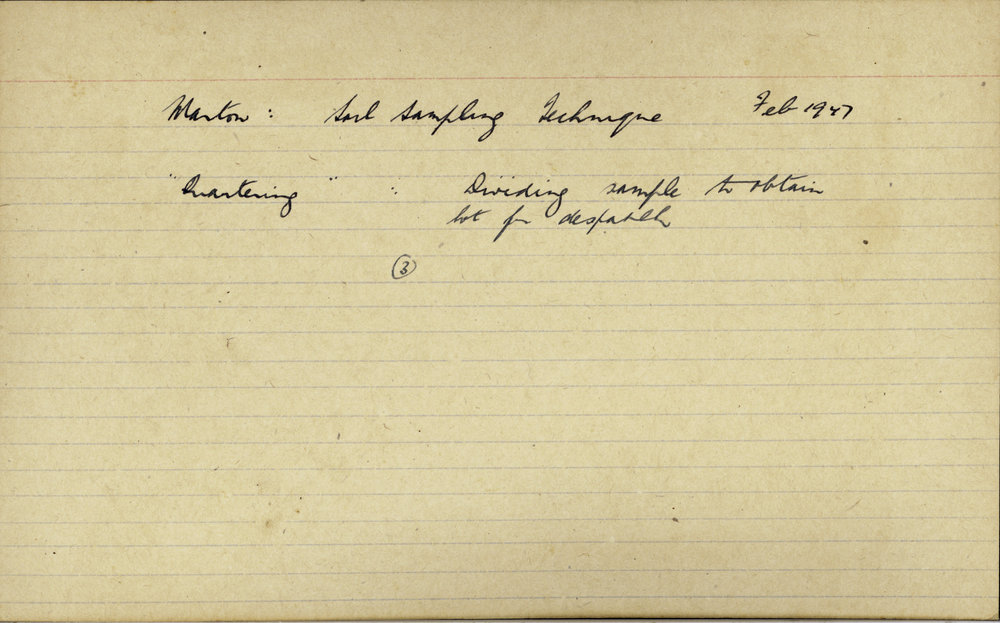 Marton : Soil Sampling Technique Feb 1947
"Quartering" : Dividing sample to obtain
lot for despatch
3